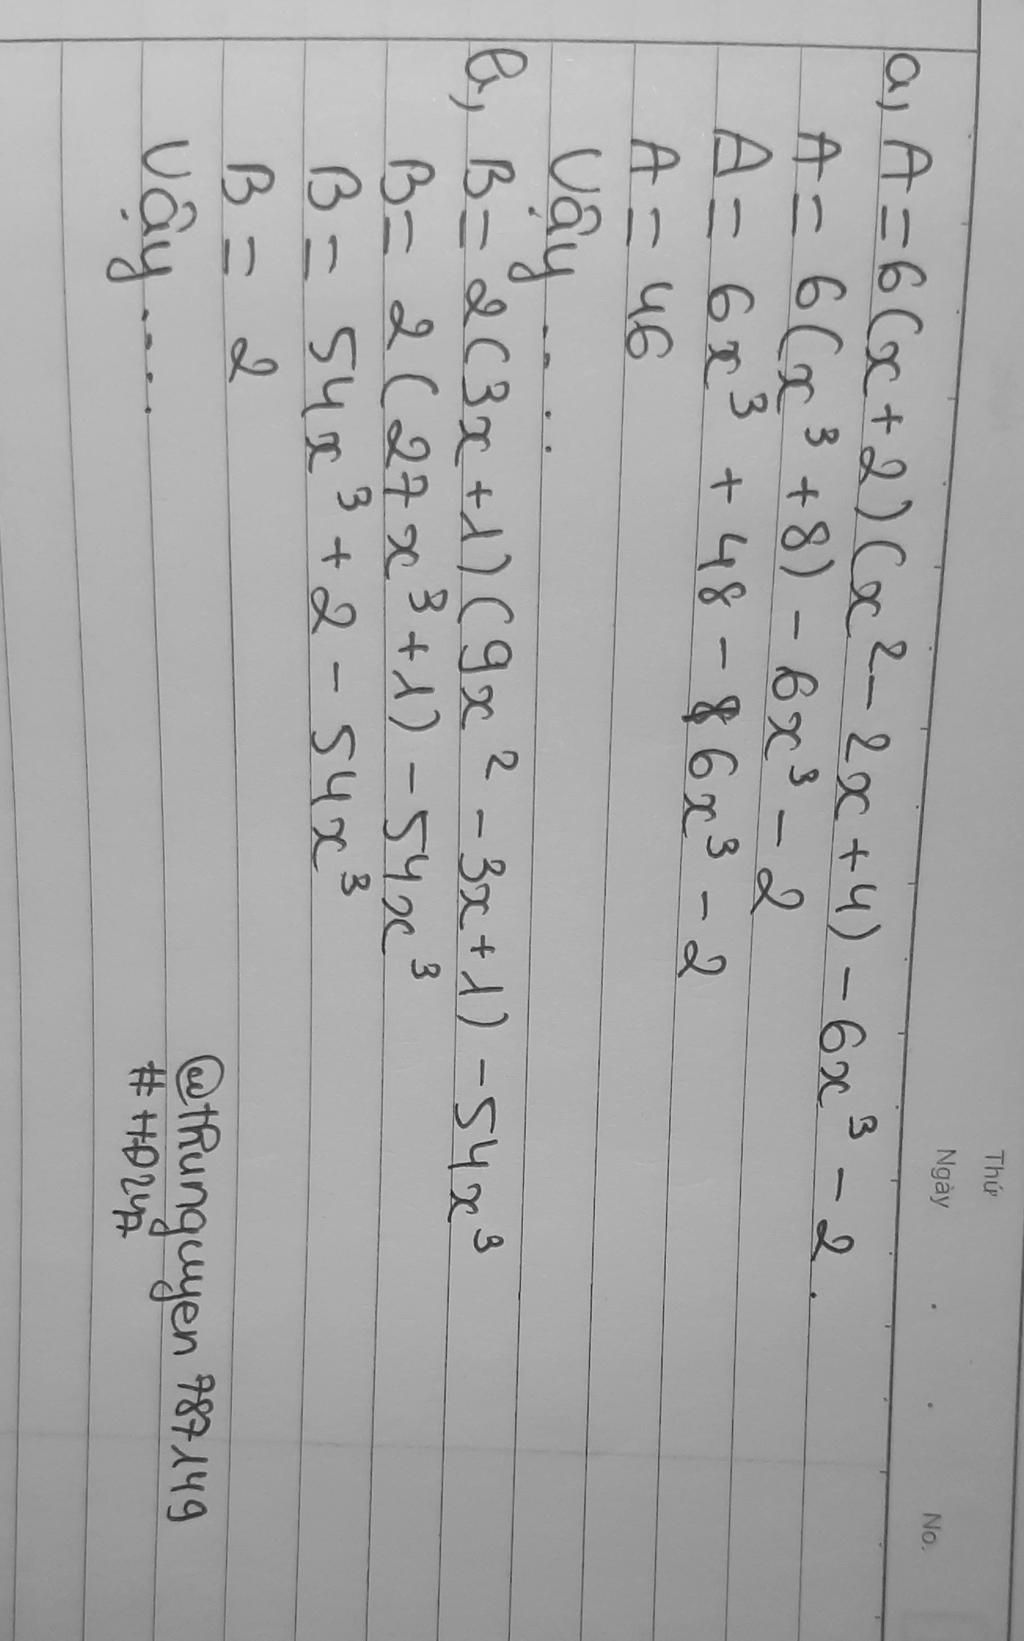 Thứ
Ngày
No.
a, A = 6(x+2)(x² - 2x + 4) - 6x³ - 2.
A = 6(x³ + 8) - 6x³ - 2
A = 6x³ + 48 - 6x³ - 2
A = 46
Vậy .....
b, B = 2(3x + 1)(9x² - 3x + 1) - 54x³
B = 2(27x³ + 1) - 54x³
B = 54x³ + 2 - 54x³
B = 2
Vậy .....
@thungwyen 787149